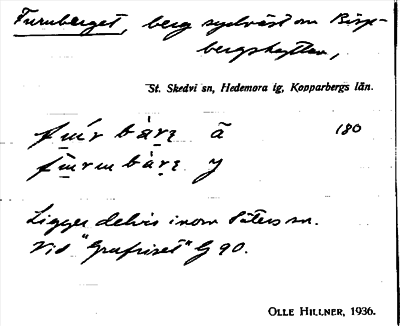 Furuberget, berg sydväst om Bisp-
bergshyttan,
St. Skedvi sn, Hedemora tg, Kopparbergs län.
ā 180
y
Ligger delvis inom Säters sn.
Vid "Grufriset" G 90.
OLLE HILLNER, 1936.